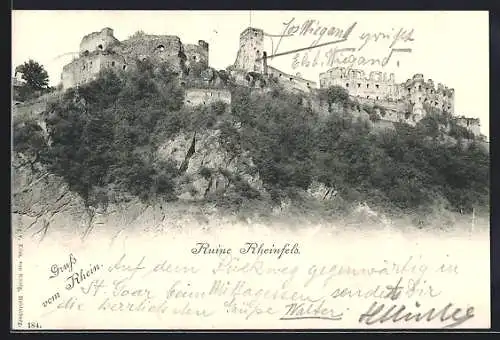 Jos Wiegand grüsst
Els. Wiegand.
Ruine Rheinfels.
Gruß
vom Rhein.
Auf dem Rückweg gegenwärtig in
St Goar beim Mittagessen sendet Dir
die herzlichsten Grüße Walter
184.